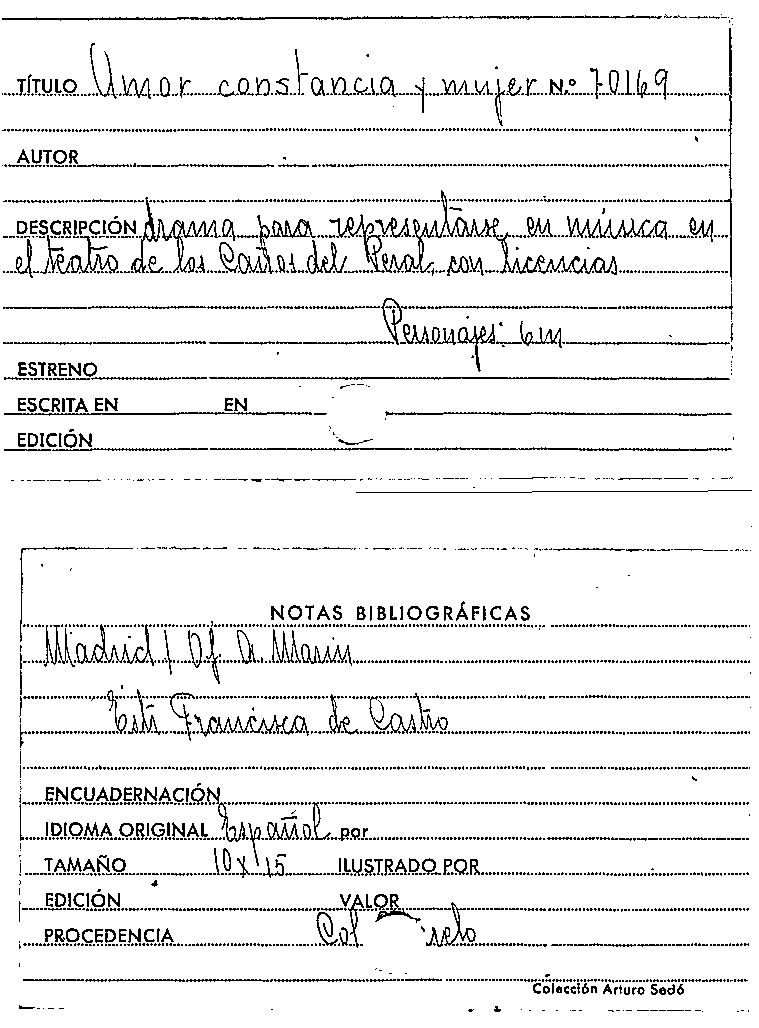 TÍTULO Amor constancia y mujer N.º 70169
AUTOR
DESCRIPCIÓN drama para representarse en música en
el teatro de los Caños del Peral, con licencias
Personajes: 6m
ESTRENO
ESCRITA EN EN
EDICIÓN
NOTAS BIBLIOGRÁFICAS
Madrid / Of. A. Marin
Francisca de Castro
ENCUADERNACIÓN
IDIOMA ORIGINAL Español por
TAMAÑO 10 x 15 ILUSTRADO POR
EDICIÓN VALOR
PROCEDENCIA Col
Colección Arturo Sedó